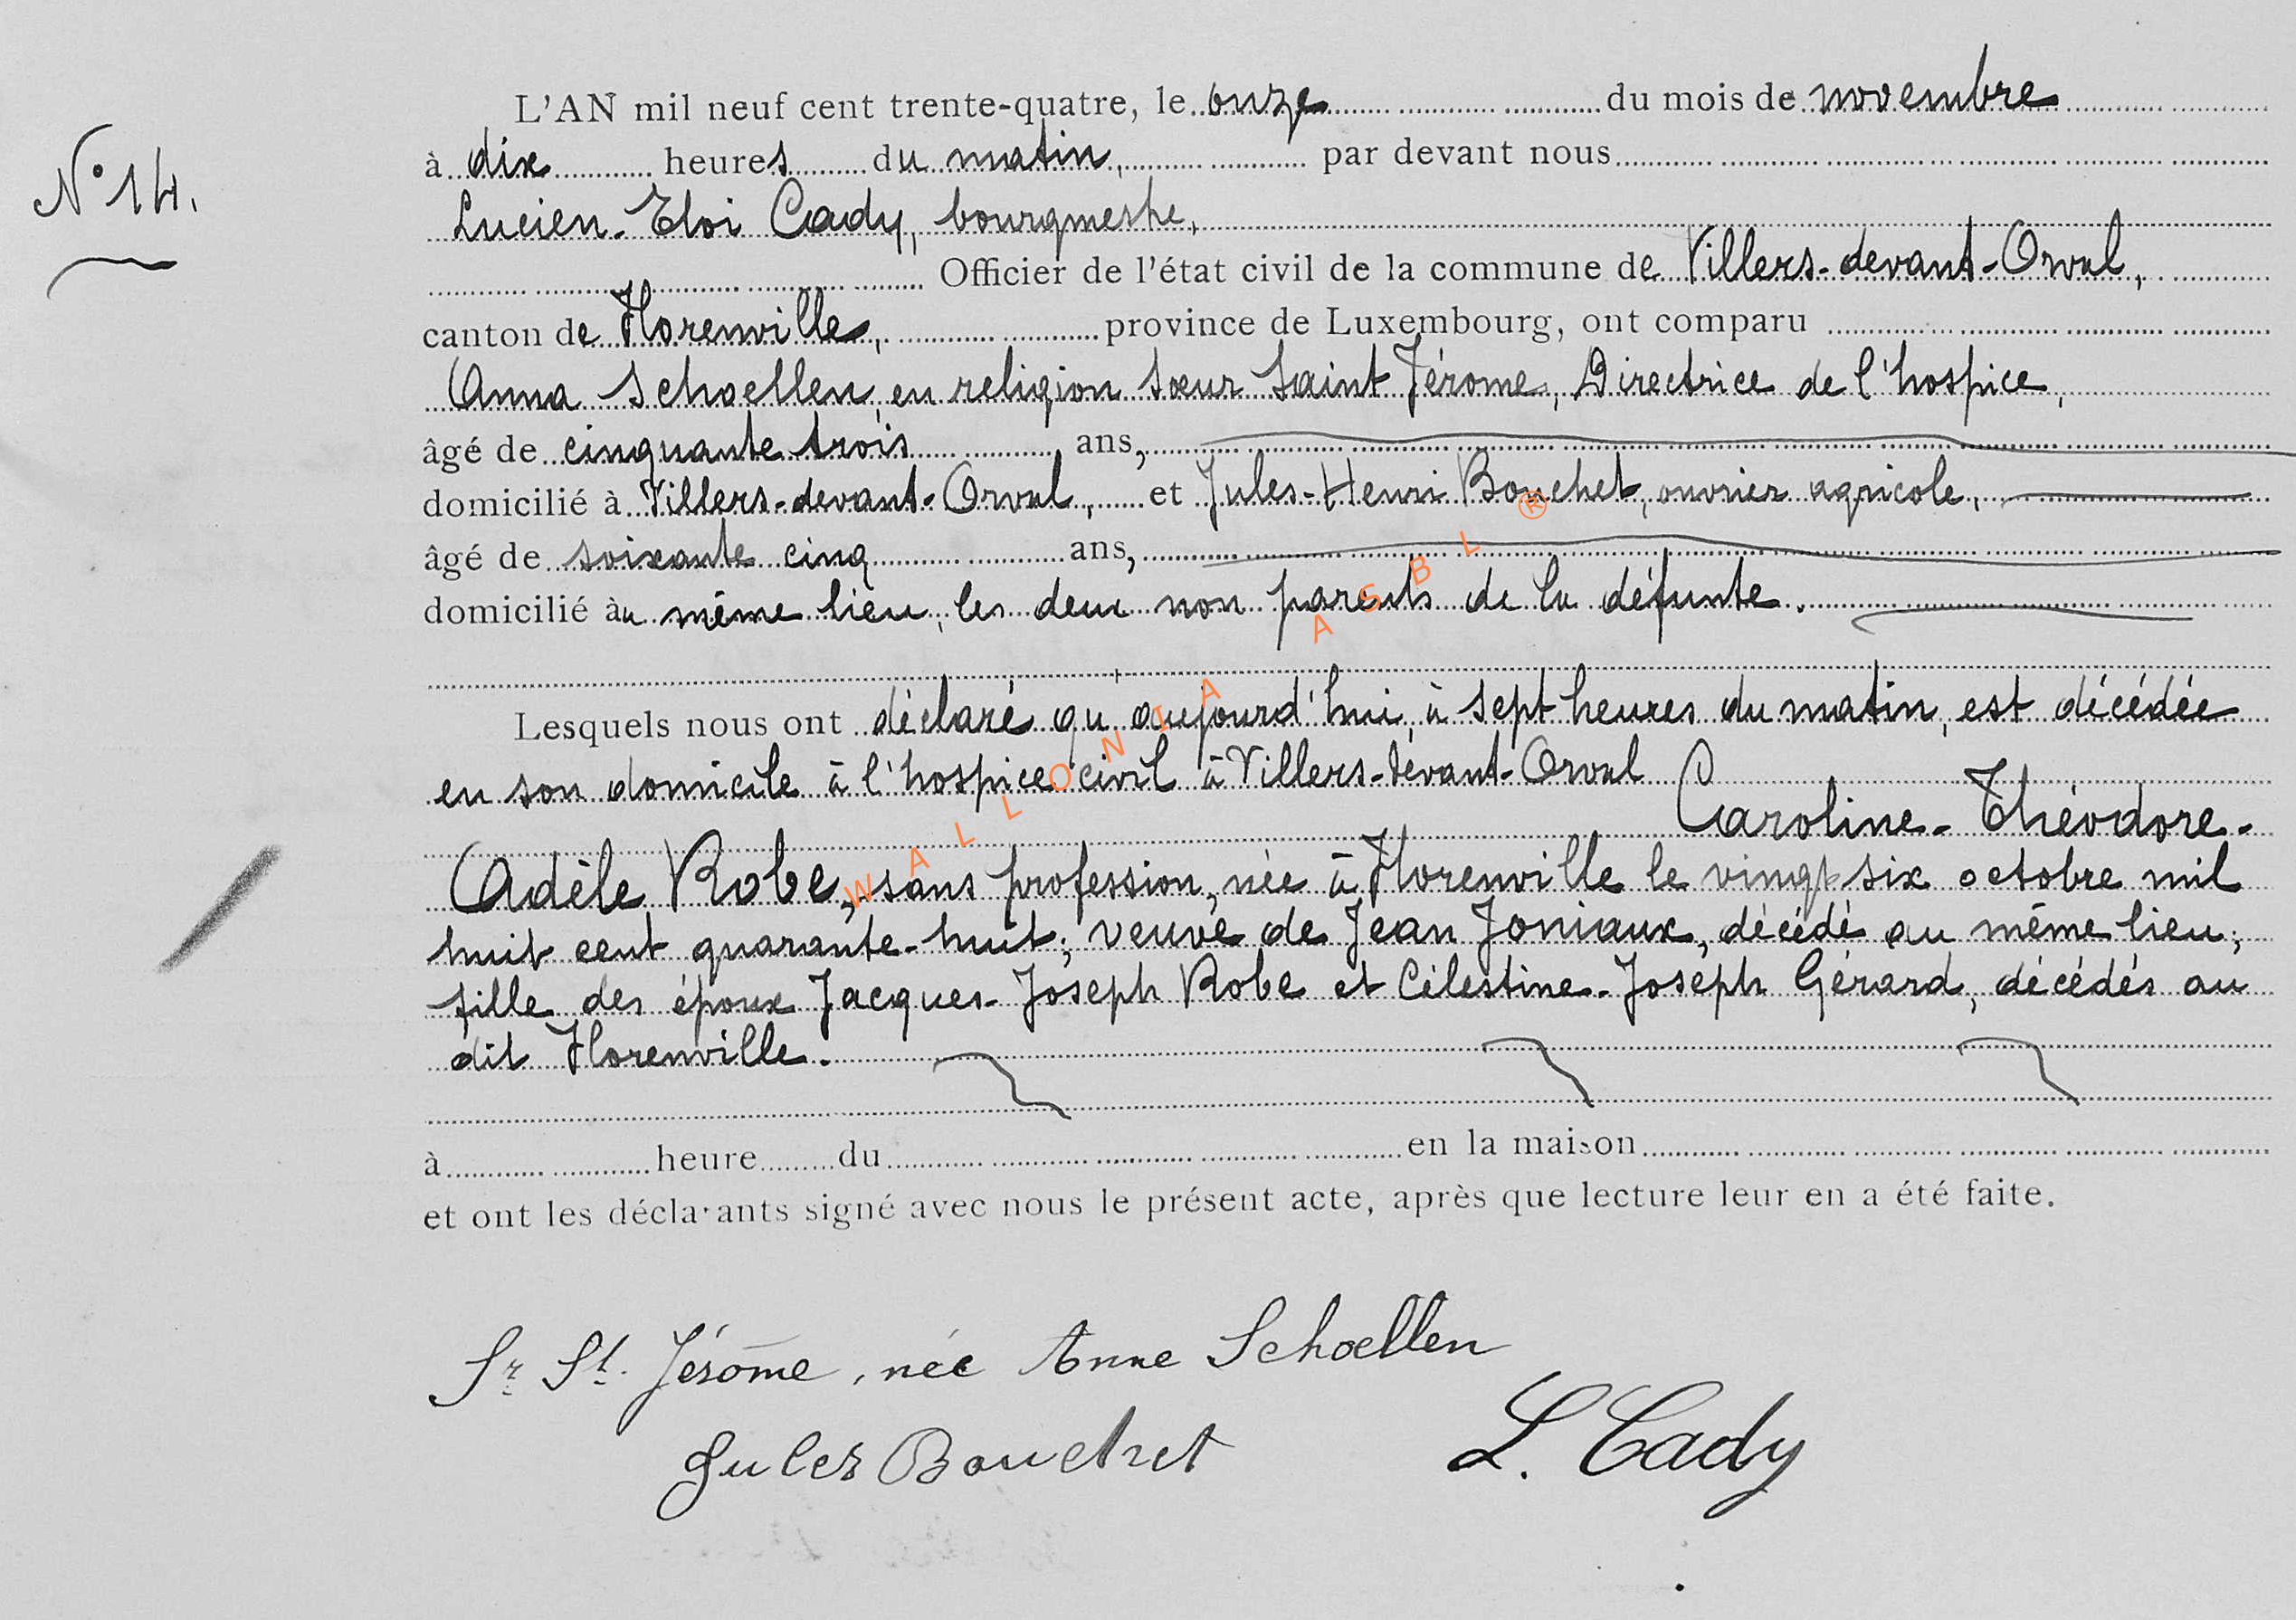 L'AN mil neuf cent trente-quatre, le onze du mois de novembre
N° 14.
à dix heures du matin, par devant nous
Lucien-Eloi Cady, bourgmestre,
Officier de l'état civil de la commune de Villers-devant-Orval,
canton de Florenville, province de Luxembourg, ont comparu
Anna Schoellen, en religion Sœur Saint Jérome, Directrice de l'hospice,
âgé de cinquante trois ans,
domicilié à Villers-devant-Orval, et Jules-Henri Bouchet, ouvrier agricole,
âgé de soixante cinq ans,
domicilié au même lieu, les deux non parents de la défunte.
Lesquels nous ont déclaré qu'aujourd'hui, à sept heures du matin, est décédée
en son domicile à l'hospice civil à Villers-devant-Orval
Caroline-Théodore-
Adèle Robe, sans profession, née à Florenville le vingt six octobre mil
huit cent quarante-huit; veuve de Jean Joniaux, décédé au même lieu;
fille des époux Jacques-Joseph Robe et Célestine-Joseph Gérard, décédés au
dit Florenville.
à heure du en la maison
et ont les déclarants signé avec nous le présent acte, après que lecture leur en a été faite.
Sr St. Jérôme, née Anne Schoellen
Jules Bouchet
L. Cady
WALLONIA ASBL ®